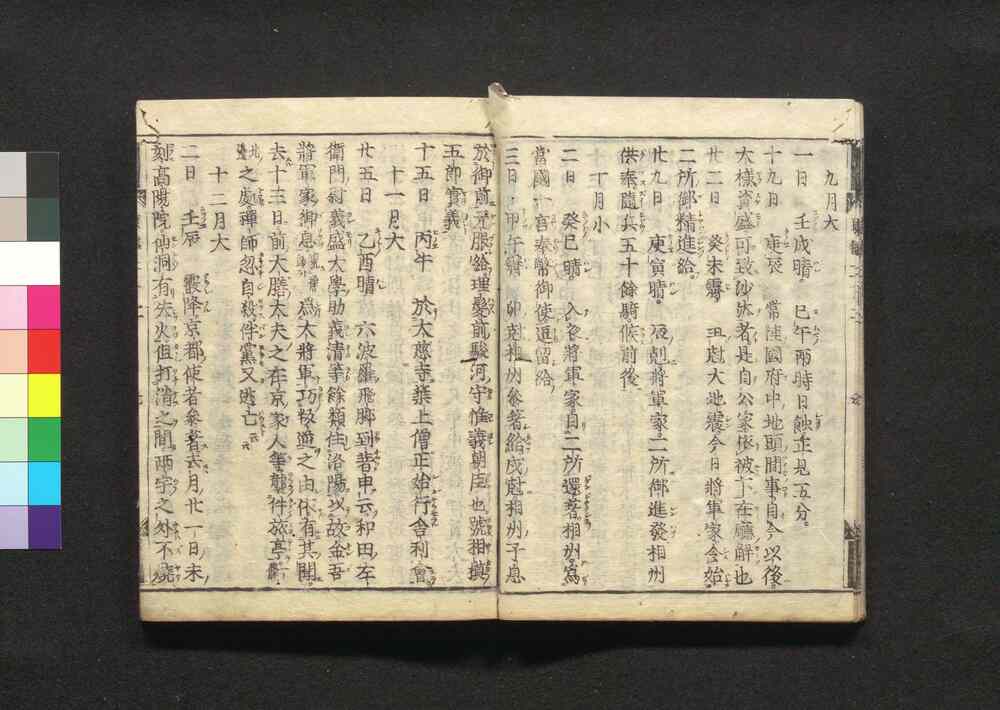 九月大
一日 壬戌晴 巳午兩時日蝕正見五分
十九日 庚辰 常陸國府中地頭間事自今以後
大掾資盛可致沙汰者是自公家依被下在廳解也
廿二日 癸未霽 丑尅大地震今日將軍家令始
二所御精進給
廿九日 庚寅晴 將軍家二所御進發相州
供奉隨兵五十餘騎候前後
十月小
二日 癸巳晴 入夜將軍家自二所還著相州爲
當國一宮奉幣御使逗留給
三日 甲午霽 卯尅相州參著給戌尅相州子息
於御前元服給理髮前駿河守惟義朝臣也號相摸
五郎實義
十五日 丙午 於大慈寺葉上僧正始行舍利會
十一月大
廿五日 乙酉晴 六波羅飛脚到著申云和田左
衞門尉義盛大學助義清等餘類住洛陽以故金吾
將軍家御息爲大將軍巧叛逆之由依有其聞
去十三日前大膳大夫之在京家人等襲件旅亭
之處禪師忽自殺件黨又逃亡云云
十二月大
二日 壬辰 霰降京都使者參著去月廿一日未
刻高陽院仙洞有失火但打消之間兩字之外不燒